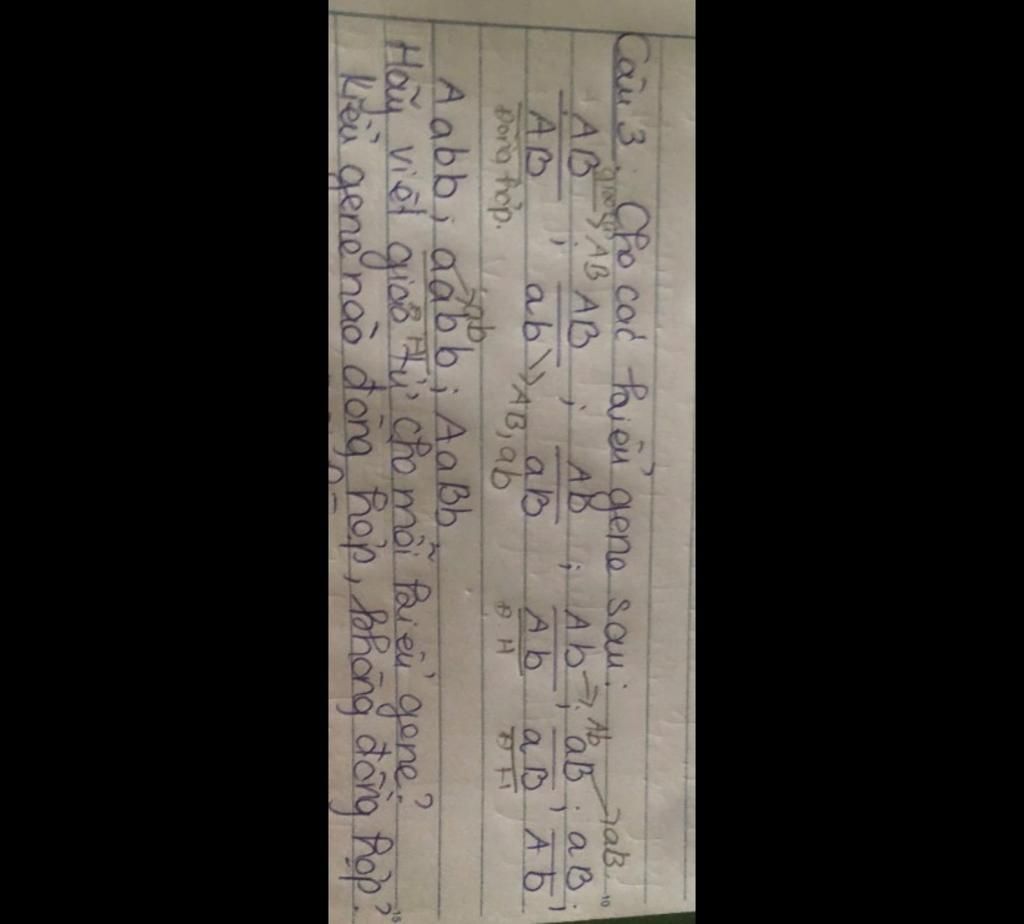 Câu 3: Cho các kiểu gene sau:
giao tử → AB → Ab → aB
AB ; AB ; Ab ; Ab ; aB ; aB ;
AB ab aB Ab aB Ab
Đồng hợp. → AB, ab Đ H Đ H
→ ab
Aabb ; aabb ; AaBb
Đ H
Hãy viết giao tử cho mỗi kiểu gene?
kiểu gene nào đồng hợp, không đồng hợp?